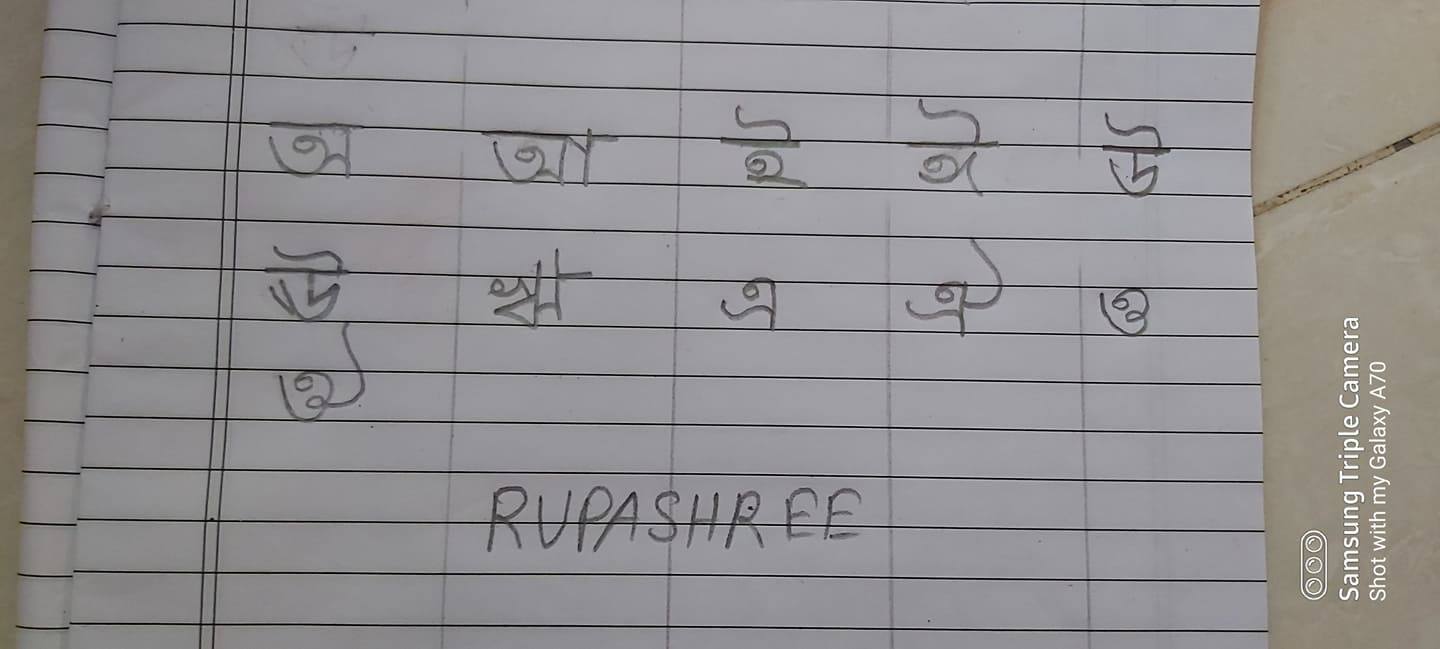 অ আ ই ঈ উ
ঊ ঋ এ ঐ ও
ঔ
RUPASHREE
Samsung Triple Camera
Shot with my Galaxy A70